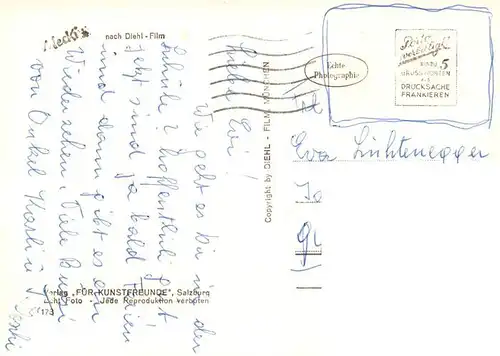 Mecki
nach Diehl-Film
Liebe Evi!
Wie geht es Dir in der
Schule? Hoffentlich gut
Jetzt sind ja bald Ferien
und dann gibt es ein
Wiedersehen. Viele Bussi
von Onkel Karli u.
Verlag „FÜR KUNSTFREUNDE“, Salzburg
Echt Foto - Jede Reproduktion verboten
173
Copyright by DIEHL - FILM, MÜNCHEN
Echte
Photographie
Porto
ermäßigt
WENN 5
GRUSSWORTEN
ALS
DRUCKSACHE
FRANKIEREN
Eva Lichtenegger